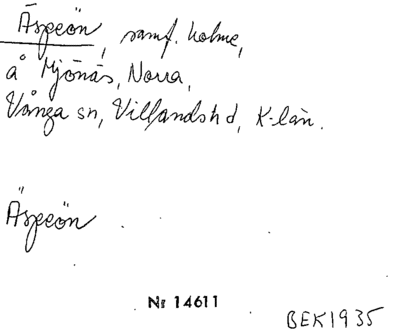 Äspeön, samf. holme,
å Mjönäs, Norra,
Vånga sn, Villands hd, K-län.
Äspeön
№ 14611
BEK1935